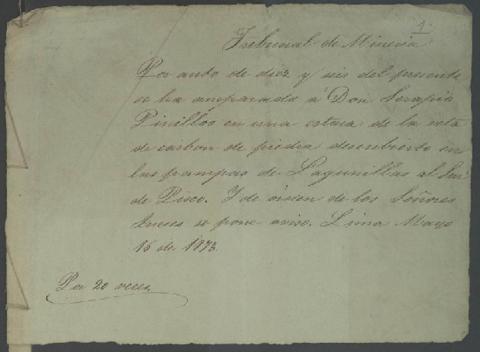 1.
Tribunal de Mineria
Por auto de diez y seis del presente
se ha amparado a Don Serapio
Pinillos en una estaca de la veta
de carbon de piedra descubierto en
las pampas de Lagunillas al Sur
de Pisco. Y de órden de los Señores
Jueces se pone aviso. Lima Mayo
16 de 1873.
Por 20 veces